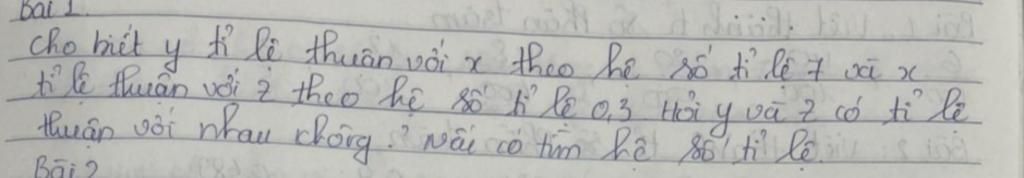 Bài 1
Cho biết y tỉ lệ thuận với x theo hệ số tỉ lệ 7 và x
tỉ lệ thuận với z theo hệ số tỉ lệ 0,3 Hỏi y và z có tỉ lệ
thuận với nhau chông? Nếu có tìm hệ số tỉ lệ.
Bài 2